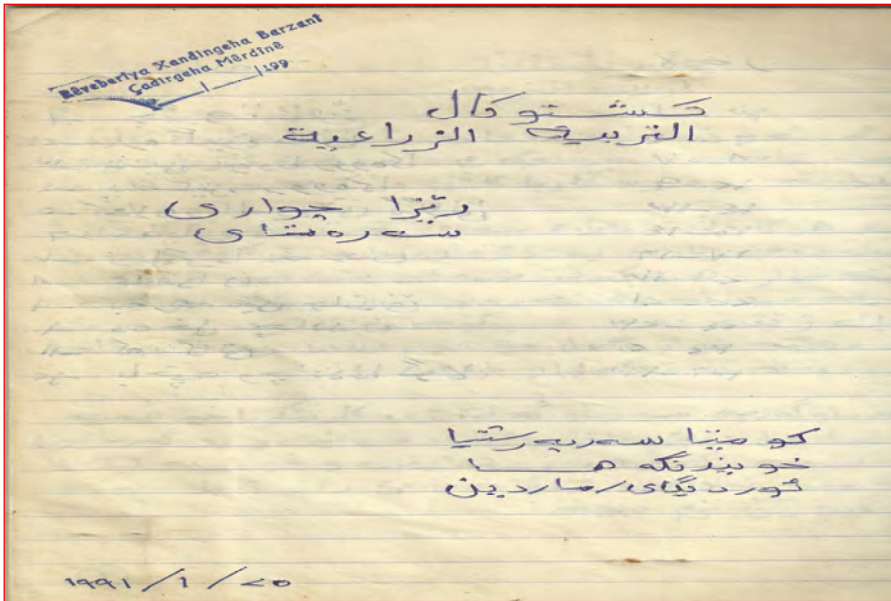 Rêveberiya Xandingeha Barzanî
Çadirgeha Mêrdînê
/ /199
كشتوكال
التربية الزراعية
رێزا چواری
سه‌ره‌تای
كوميتا سه‌رپه‌رشتيا
خويندنگه‌ها
ئوردیگای / ماردین
١٩٩١ / ١ / ٢٥